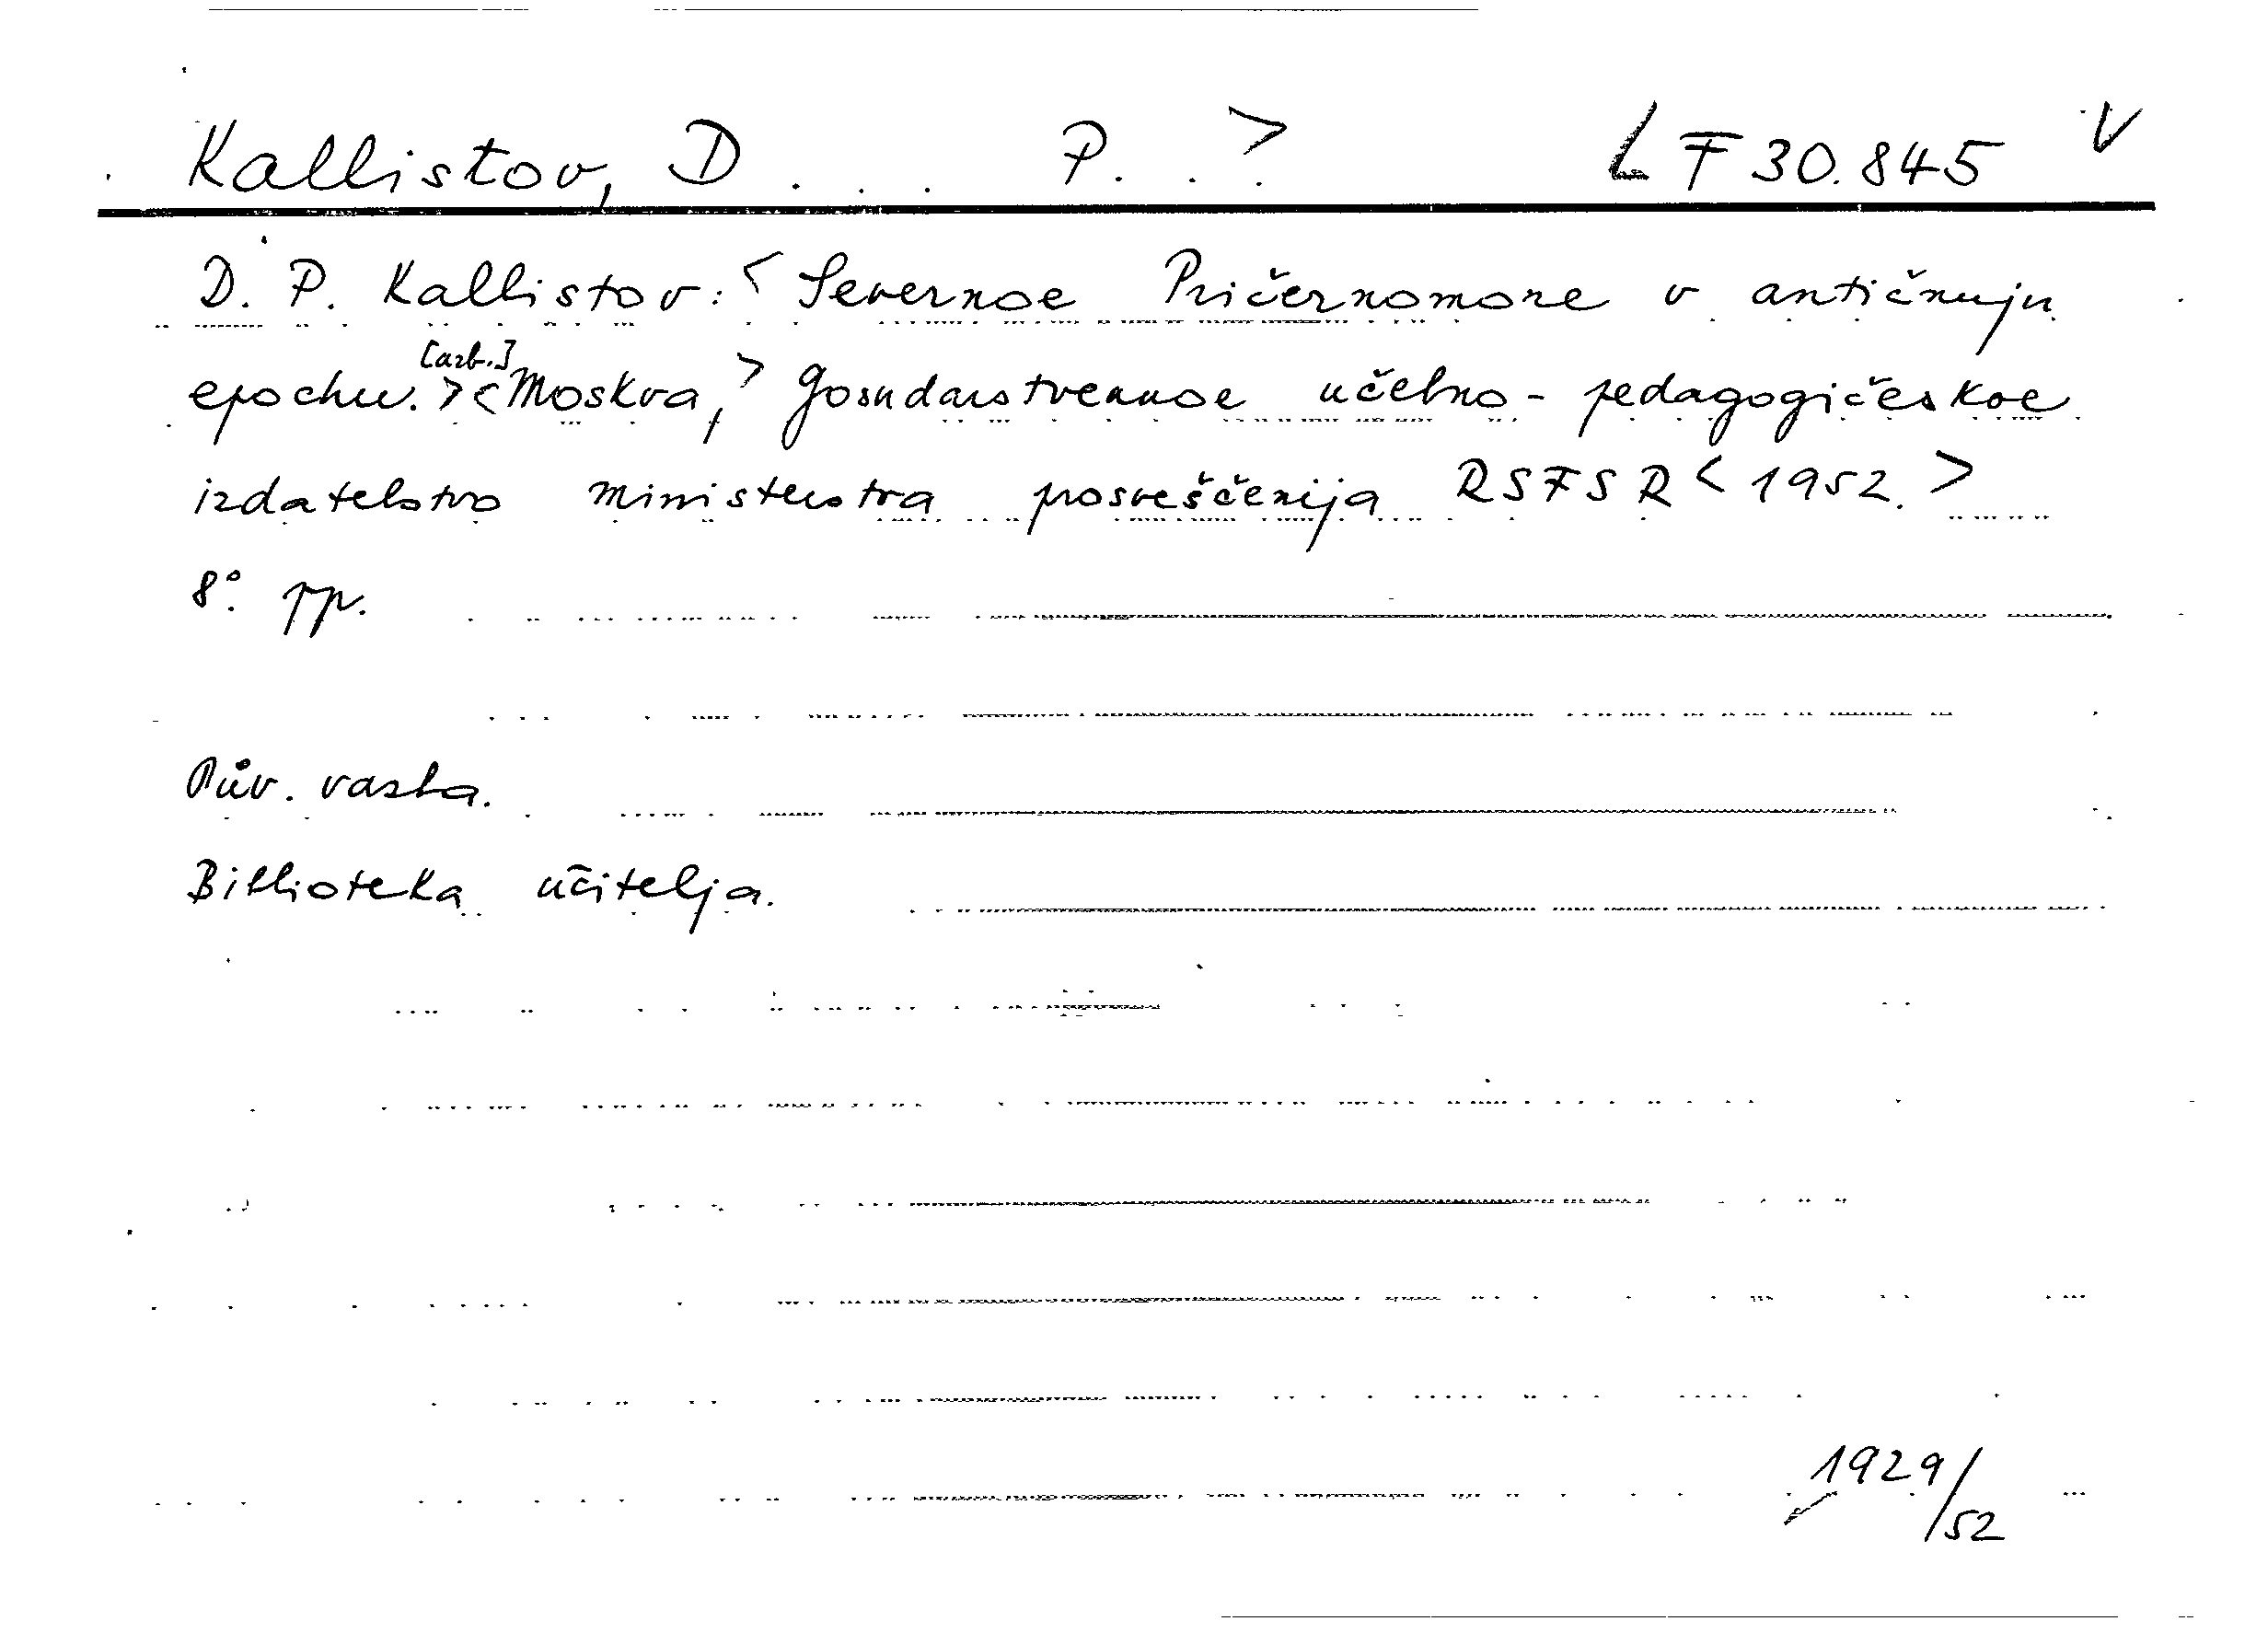 Kallistov, D . . . P. . . > LF 30.845 V
D. P. Kallistov: < Severnoe Pričernomore v antičnuju
[azb.]
epochu. > < Moskva, > Gosudarstvennoe učebno-pedagogičeskoe
izdatelstvo ministerstva prosveščenija RSFSR < 1952. >
8°. pp.
Pův. vazba.
Biblioteka učitelja.
1929/52